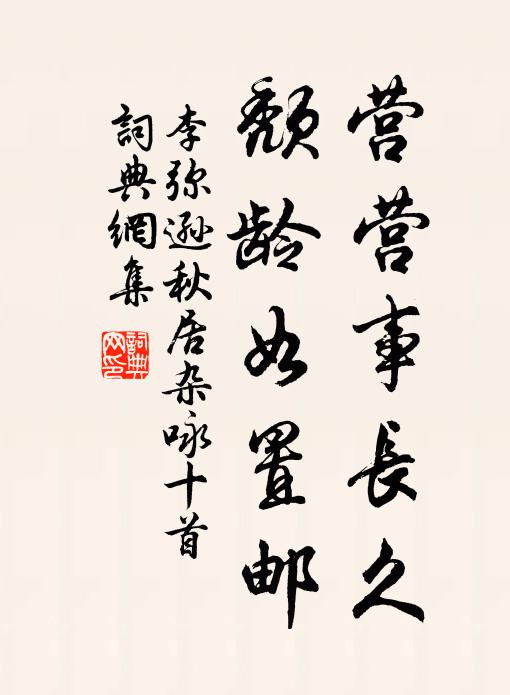 营营事長久
颓龄如置邮
李弥逊秋居杂咏十首
詞典網集
詞典
网印